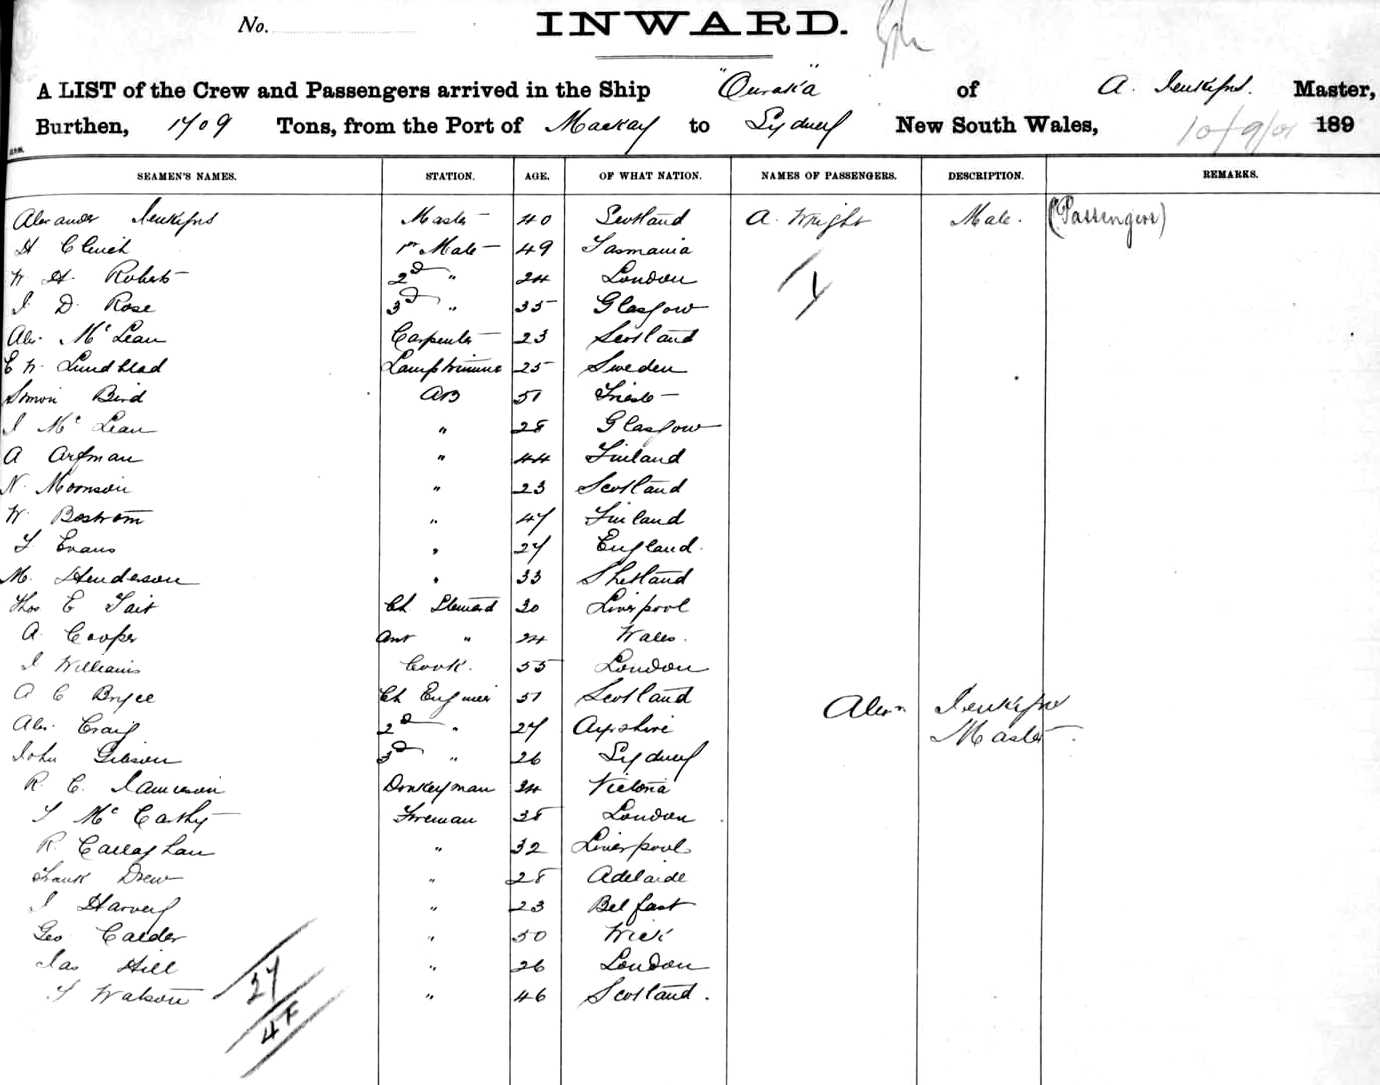 No.
INWARD.
A LIST of the Crew and Passengers arrived in the Ship "Ouraka" of A. Jenkins Master,
Burthen, 1709 Tons, from the Port of Mackay to Sydney New South Wales, 10/9/01 189
SEAMEN'S NAMES. STATION. AGE. OF WHAT NATION. NAMES OF PASSENGERS. DESCRIPTION. REMARKS.
Alexander Master 40 Scotland A. Wright Male. (Passengers)
H Clinch 1st Mate 49 Tasmania
W H. Roberts 2d " 24 London
J. D. Rose 3d " 35 Glasgow
Alex. McLean Carpenter 23 Scotland
E W. Lundblad Lamptrimmer 25 Sweden
Simon Bird AB 51 Trieste
J McLean " 28 Glasgow
A " 44 Finland
N. " 23 Scotland
W. Bostrom " 47 Finland
T Evans " 27 England.
M. Henderson " 33 Shetland
Thos E Tait Ch Steward 30 Liverpool
A. Cooper " 24 Wales.
J Williams Cook. 55 London
A C Bryce Ch Engineer 51 Scotland
Alex. Craig 2d " 27 Ayrshire
John Gibson 3d " 26 Sydney
R. C. Jamieson Donkeyman 24 Victoria
T McCarthy Fireman 38 London
R. Callaghan " 32 Liverpool
Frank Drew " 28 Adelaide
J Harvey " 23 Belfast
Geo Calder " 50 Wick
Jas Hill " 26 London
T Watson " 46 Scotland.
Alexr
Master
27
4F